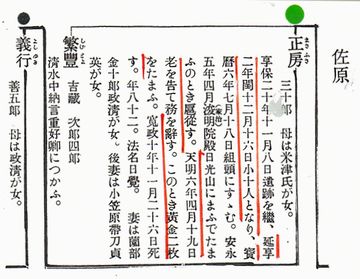 佐原
正房
まさふさ
三十郎 母は米津氏が女。
享保二十年十一月八日遺跡を継、延享
二年閏十二月十六日小十人となり、寳
暦六年七月十八日組頭にすゝむ。安永
五年四月浚明院殿日光山にまふでたま
ふのとき扈從す。天明六年四月十九日
老を告て務を辭す。このとき黄金二枚
をたまふ。寛政十年十一月二十六日死
す。年八十二。法名日覺。 妻は薗部
金十郎政清が女。後妻は小笠原帶刀貞
英が女。
繁豐
しげとよ
吉藏 次郎四郎
清水中納言重好卿につかふ。
義行
善五郎 母は政清が女。